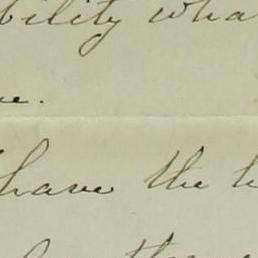 bility wha
e.
have the
the